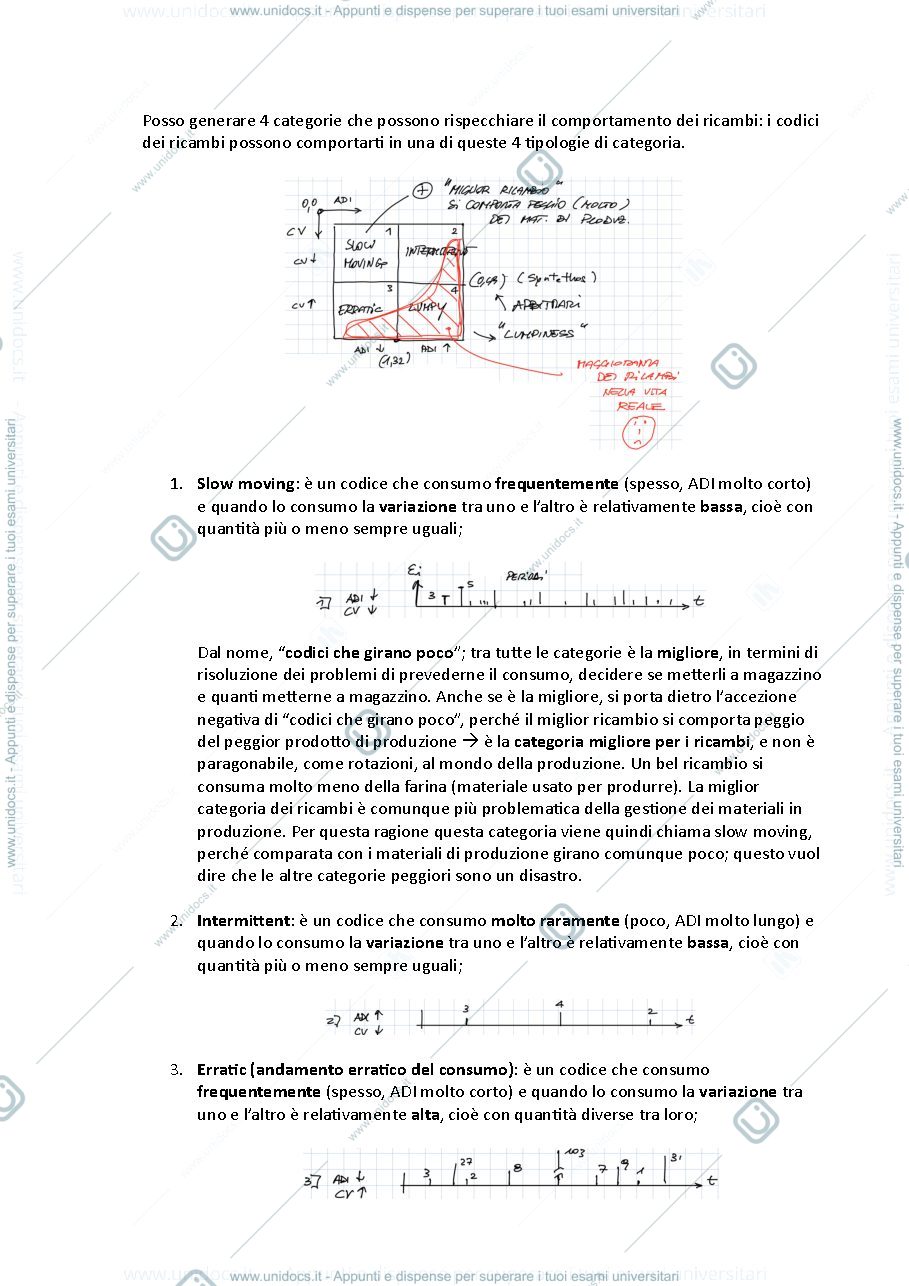 www.unidocs.it - Appunti e dispense per superare i tuoi esami universitari
Posso generare 4 categorie che possono rispecchiare il comportamento dei ricambi: i codici
dei ricambi possono comportarti in una di queste 4 tipologie di categoria.
0,0 ADI
+ "MIGLIOR RICAMBIO"
SI COMPORTA PEGGIO (MOLTO)
DEI MAT. DI PRODUZ.
CV
1 2
CV ↓ SLOW MOVING INTERMITTENT
(0,49) (Syntethos)
3 4
CV ↑ ERRATIC LUMPY
ARBITRARI
"LUMPINESS"
ADI ↓ ADI ↑
(1,32)
MAGGIORANZA
DEI RICAMBI
NELLA VITA
REALE
1. Slow moving: è un codice che consumo frequentemente (spesso, ADI molto corto)
e quando lo consumo la variazione tra uno e l’altro è relativamente bassa, cioè con
quantità più o meno sempre uguali;
Ei
PERIODI
1] ADI ↓ 3 5 t
CV ↓
Dal nome, “codici che girano poco”; tra tutte le categorie è la migliore, in termini di
risoluzione dei problemi di prevederne il consumo, decidere se metterli a magazzino
e quanti metterne a magazzino. Anche se è la migliore, si porta dietro l’accezione
negativa di “codici che girano poco”, perché il miglior ricambio si comporta peggio
del peggior prodotto di produzione → è la categoria migliore per i ricambi, e non è
paragonabile, come rotazioni, al mondo della produzione. Un bel ricambio si
consuma molto meno della farina (materiale usato per produrre). La miglior
categoria dei ricambi è comunque più problematica della gestione dei materiali in
produzione. Per questa ragione questa categoria viene quindi chiama slow moving,
perché comparata con i materiali di produzione girano comunque poco; questo vuol
dire che le altre categorie peggiori sono un disastro.
2. Intermittent: è un codice che consumo molto raramente (poco, ADI molto lungo) e
quando lo consumo la variazione tra uno e l’altro è relativamente bassa, cioè con
quantità più o meno sempre uguali;
2] ADI ↑ 3 4 2 t
CV ↓
3. Erratic (andamento erratico del consumo): è un codice che consumo
frequentemente (spesso, ADI molto corto) e quando lo consumo la variazione tra
uno e l’altro è relativamente alta, cioè con quantità diverse tra loro;
3] ADI ↓ 3 27 2 8 103 7 9 1 31 t
CV ↑
www.unidocs.it - Appunti e dispense per superare i tuoi esami universitari